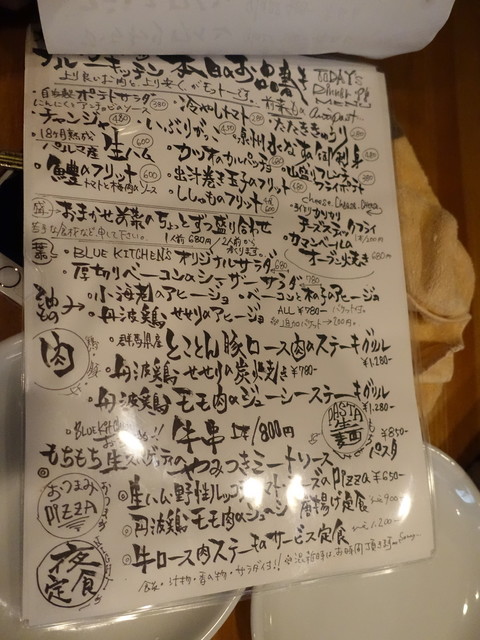 ブルーキッチン 本日のお品書き
TODAY's Dinner MENU
自家製ポテトサラダ
冷やしトマト
たたききゅうり
チャンジャ 480
いぶりがっこ
泉州水なすの御刺身
18ヶ月熟成
パルマ産 生ハム 600
カツオのカルパッチョ
山盛りフレンチフライポテト
鱧のフリット 600
トマトと梅肉のソース
出汁巻き玉子のフリット
ししゃものフリット
Cheese, Cheese, Cheese
チーズスティックフライ
カマンベールのオーブン焼き 680円
おまかせ前菜のちょっとずつ盛り合せ
1人前 680円/2人前から
BLUE KITCHEN'S オリジナルサラダ 680
厚切りベーコンのシーザーサラダ 780
小海老のアヒージョ・ベーコンと木の子のアヒージョ
丹波鶏 せせりのアヒージョ
ALL ¥780-
肉
群馬県産 とことん豚ロース肉のステーキグリル
¥1,280-
丹波鶏 せせりの炭焼き ¥780-
丹波鶏 モモ肉のジューシーステーキグリル
¥1,280-
PASTA 生麺
牛串 1本/800円
¥850-
もちもち生スパゲティのやみつきミートソースパスタ
おつまみPIZZA
生ハム・野性ルッコラ
PIZZA ¥650-
丹波鶏モモ肉の
唐揚げ定食
夜定食
牛ロース肉ステーキのサービス定食 1,200-
食・汁物・香の物・サラダ付!!